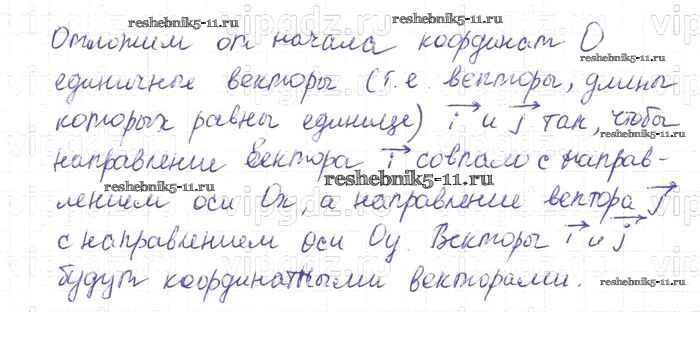 reshebnik5-11.ru
Отложим от начала координат O
reshebnik5-11.ru
единичные векторы (т.е. векторы, длины
которых равны единице) i и j так, чтобы
направление вектора i совпало с направ-
reshebnik5-11.ru
лением оси Ox, а направление вектора j
с направлением оси Oy. Векторы i и j
будут координатными векторами.
reshebnik5-11.ru